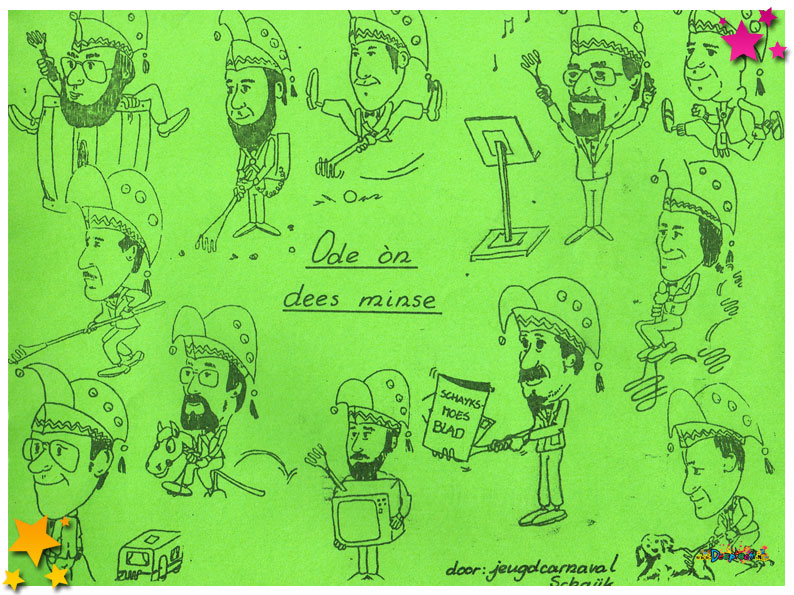 Ode òn
dees minse
SCHAYKS-
MOES
BLAD
door: jeugdcarnaval
Schaijk